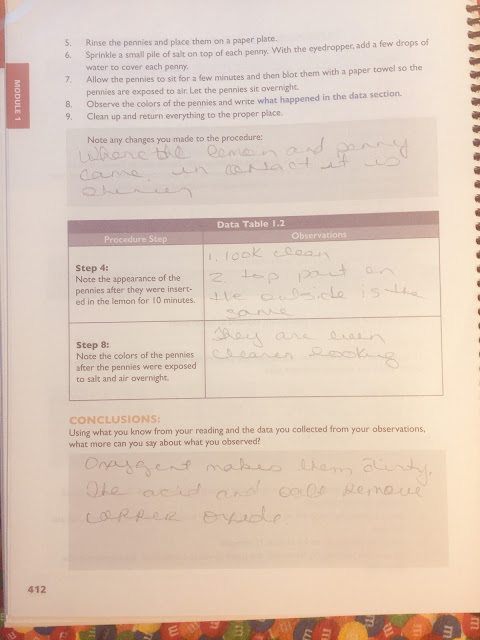 MODULE 1
5. Rinse the pennies and place them on a paper plate.
6. Sprinkle a small pile of salt on top of each penny. With the eyedropper, add a few drops of
water to cover each penny.
7. Allow the pennies to sit for a few minutes and then blot them with a paper towel so the
pennies are exposed to air. Let the pennies sit overnight.
8. Observe the colors of the pennies and write what happened in the data section.
9. Clean up and return everything to the proper place.
Note any changes you made to the procedure:
where the lemon and penny
came in contact it is
shinier
Data Table 1.2
Procedure Step Observations
Step 4:
Note the appearance of the
pennies after they were insert-
ed in the lemon for 10 minutes.
1. look clean
2. top part on
the outside is the
same
Step 8:
Note the colors of the pennies
after the pennies were exposed
to salt and air overnight.
They are even
cleaner looking
CONCLUSIONS:
Using what you know from your reading and the data you collected from your observations,
what more can you say about what you observed?
makes them dirty.
The acid and salt remove
copper oxide.
412